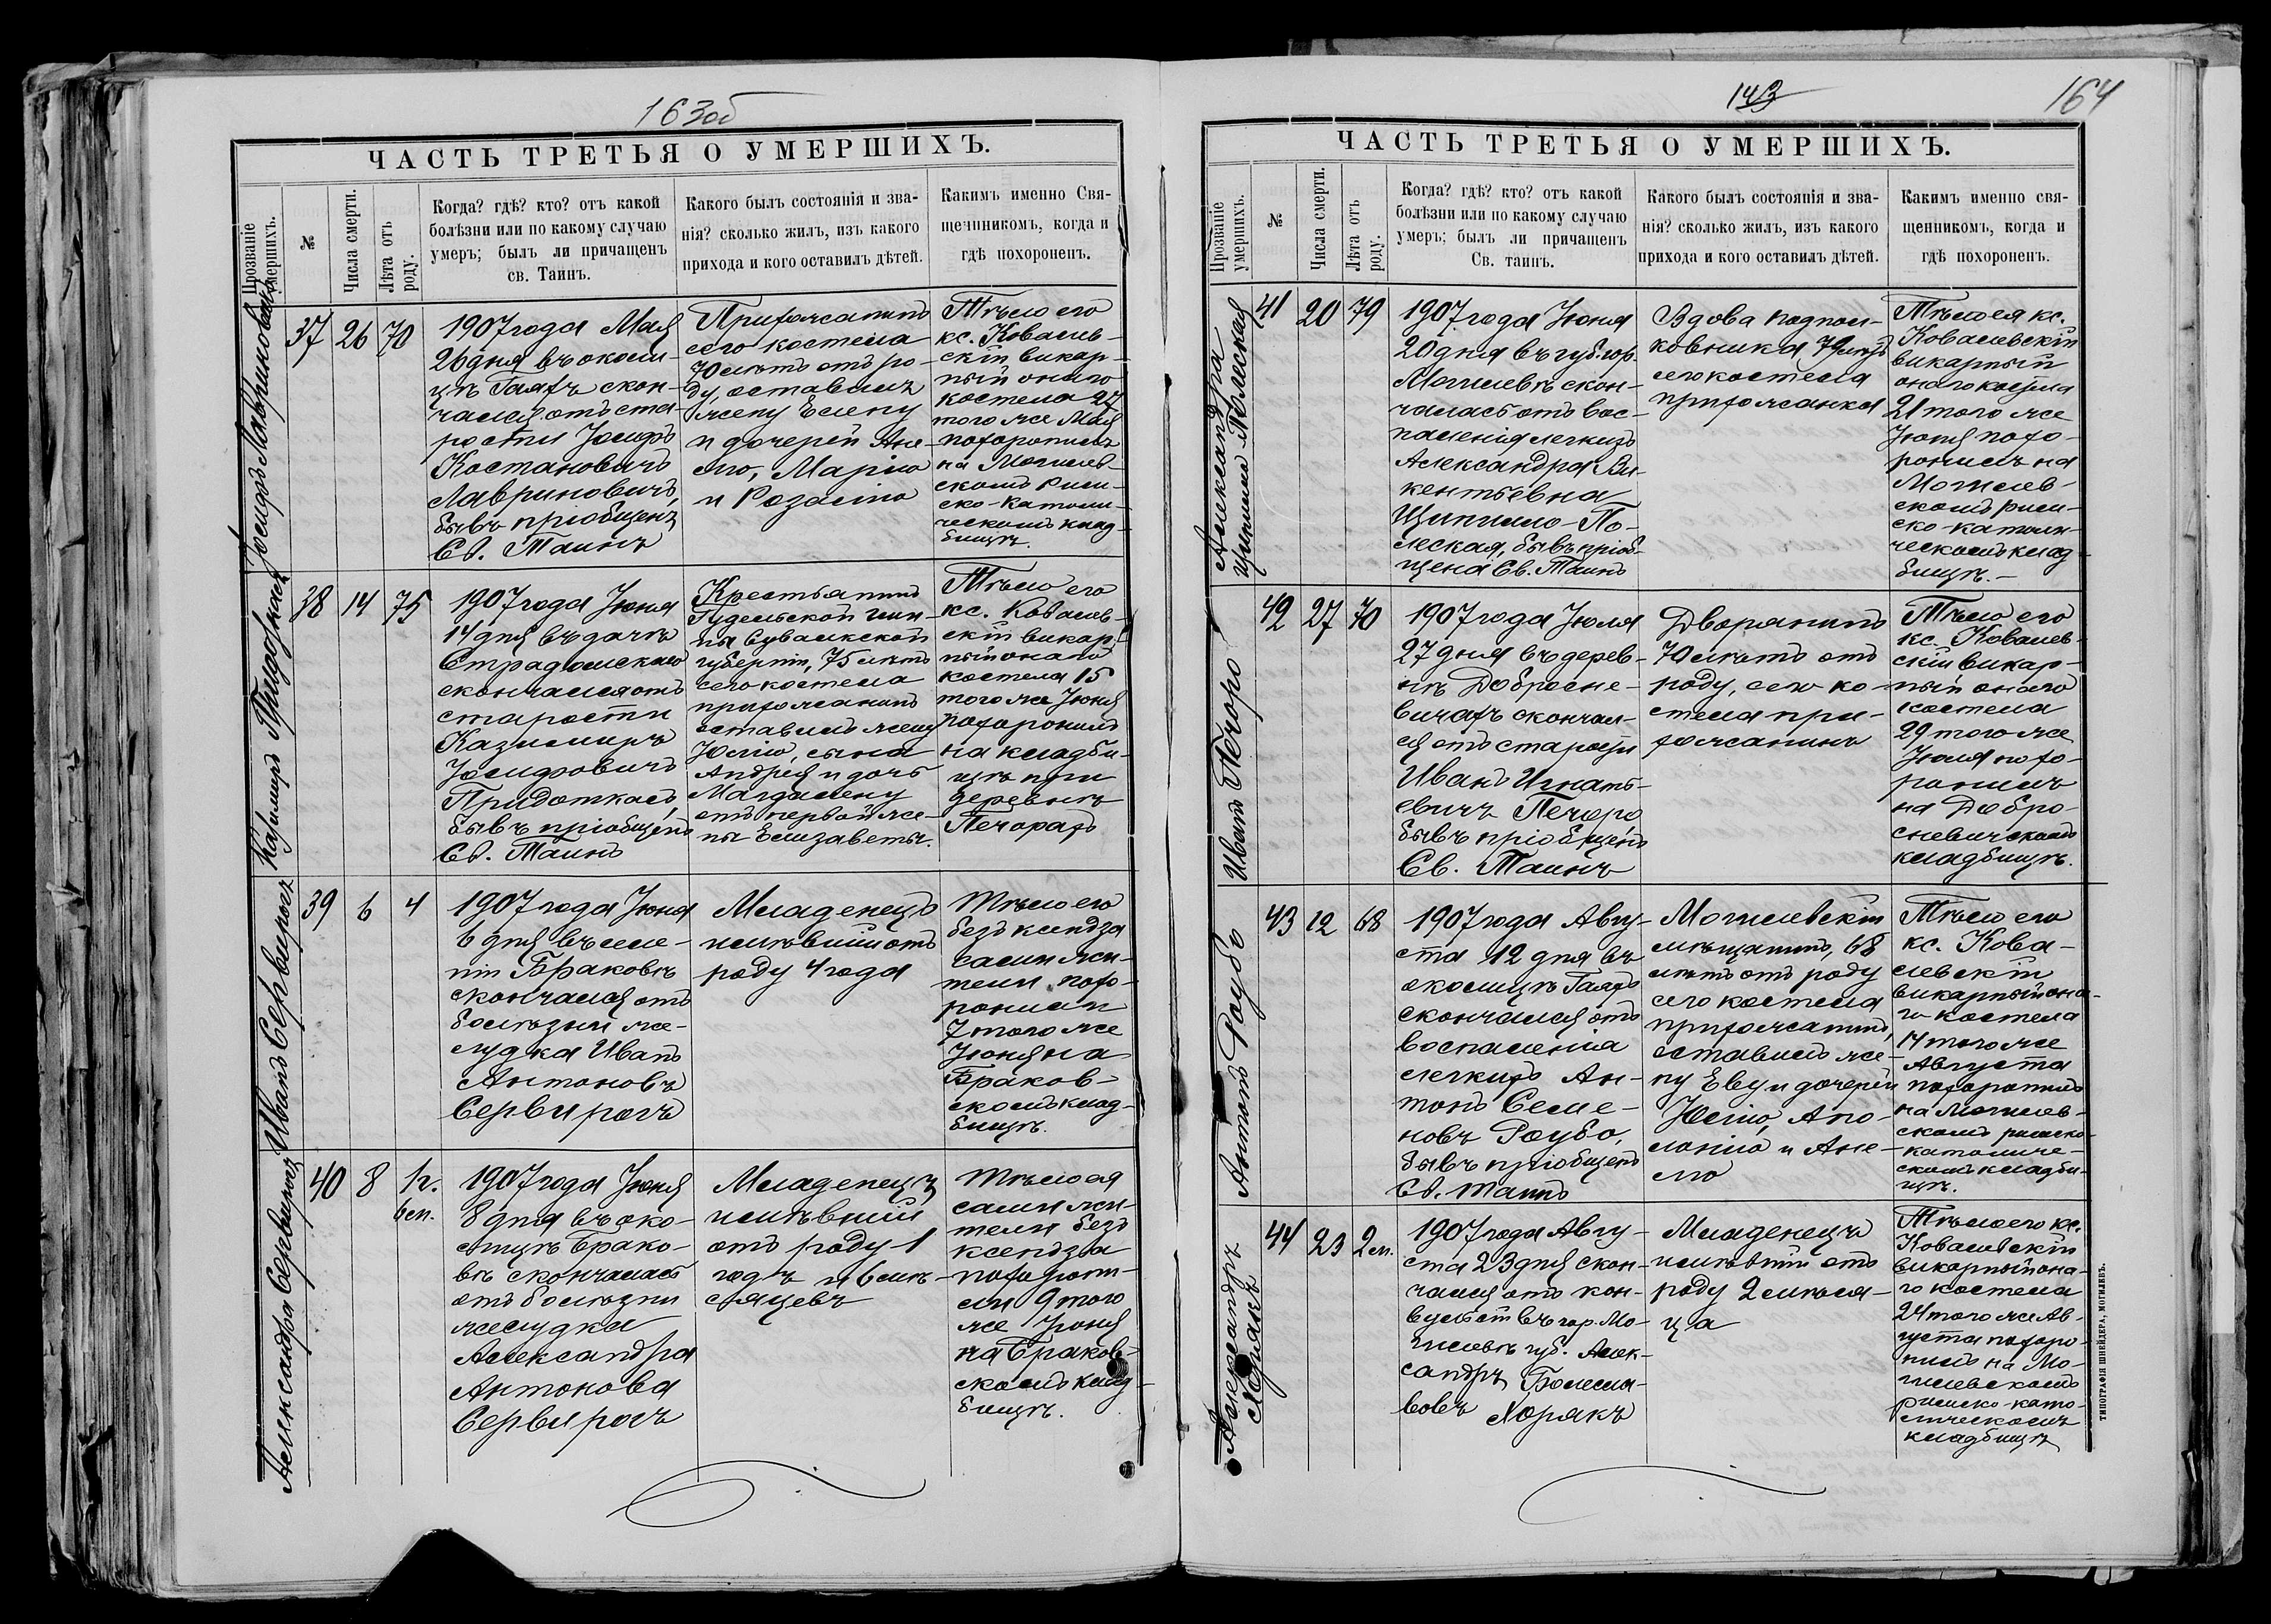 163об
ЧАСТЬ ТРЕТЬЯ О УМЕРШИХЪ.
Прозваніе умершихъ.
№
Числа смерти.
Лѣта отъ роду.
Когда? гдѣ? кто? отъ какой
болѣзни или по какому случаю
умеръ; былъ ли причащенъ
св. Таинъ.
Какого былъ состоянія и зва-
нія? сколько жилъ, изъ какого
прихода и кого оставилъ дѣтей.
Какимъ именно Свя-
щенникомъ, когда и
гдѣ похороненъ.
Іосифъ Лавриновичъ
37
26
70
1907 года Мая
26 дня въ околи-
цѣ Гаяхъ скон-
чался отъ ста-
рости Іосифъ
Костановичъ
Лавриновичъ,
бывъ пріобщенъ
Св. Таинъ
Прихожанинъ
сего костела
70 лѣтъ отъ ро-
ду, оставилъ
жену Елену
и дочерей Ане-
лю, Марію
и Розалію
Тѣло его
кс. Ковалев-
скій викар-
ный онаго
костела 27
того же Мая
похоронилъ
на Могилев-
скомъ рим-
ско-католи-
ческомъ клад-
бищѣ.
Казимиръ Придоткасъ
38
14
75
1907 года Іюня
14 дня въ дачѣ
скончался отъ
старости
Казимиръ
Іосифовичъ
Придоткасъ,
бывъ пріобщенъ
Св. Таинъ
Крестьянинъ
Гудельской гми-
ны Сувалкской
губерніи, 75 лѣтъ
сего костела
прихожанинъ
оставилъ жену
Юлію, сына
Андрея и дочь
Магдалену
отъ первой же-
ны Елизаветы.
Тѣло его
кс. Ковалев-
скій викар-
ный онаго
костела 15
того же Іюня
похоронилъ
на кладби-
щѣ при
деревнѣ
Печорахъ
Иванъ Сервирогъ
39
6
4
1907 года Іюня
6 дня въ име-
ніи Браковѣ
скончался отъ
болѣзни же-
лудка Иванъ
Антоновъ
Сервирогъ
Младенецъ
имѣвшій отъ
роду 4 года
Тѣло его
безъ ксендза
сами жи-
тели похо-
ронили
7 того же
Іюня на
Браков-
скомъ клад-
бищѣ.
Александра Сервирогъ
40
8
1 г.
6 м.
1907 года Іюня
8 дня въ око-
лицѣ Брако-
вѣ скончалась
отъ болѣзни
желудка
Александра
Антонова
Сервирогъ
Младенецъ
имѣвшій
отъ роду 1
годъ и 6 мѣ-
сяцевъ
Тѣло ея
сами жи-
тели безъ
ксендза
похорони-
ли 9 того
же Іюня
на Браков-
скомъ клад-
бищѣ.
143
164
ЧАСТЬ ТРЕТЬЯ О УМЕРШИХЪ.
Прозваніе умершихъ.
№
Числа смерти.
Лѣта отъ роду.
Когда? гдѣ? кто? отъ какой
болѣзни или по какому случаю
умеръ; былъ ли причащенъ
Св. таинъ.
Какого былъ состоянія и зва-
нія? сколько жилъ, изъ какого
прихода и кого оставилъ дѣтей.
Какимъ именно свя-
щенникомъ, когда и
гдѣ похороненъ.
Александра
Ципилло Полеская
41
20
79
1907 года Іюня
20 дня въ губ. гор.
Могилевѣ скон-
чалась отъ вос-
паленія легкихъ
Александра Ви-
кентьевна
Ципилло-По-
леская, бывъ пріоб-
щена Св. Таинъ
Вдова подпол-
ковника, 79 лѣтъ
сего костела
прихожанка
Тѣло ея кс.
Ковалевскій
викарный
онаго костела
21 того же
Іюня похо-
ронилъ на
Могилев-
скомъ рим-
ско-католи-
ческомъ клад-
бищѣ.-
Иванъ Печоро
42
27
70
1907 года Іюля
27 дня въ дерев-
нѣ Добросне-
вичахъ скончал-
ся отъ старости
Иванъ Игнать-
евичъ Печоро
бывъ пріобщенъ
Св. Таинъ
Дворянинъ
70 лѣтъ отъ
роду, сего ко-
стела при-
хожанинъ
Тѣло его
кс. Ковалев-
скій викар-
ный онаго
костела
29 того же
Іюля похо-
ронилъ
на Добро-
сневичскомъ
кладбищѣ.
Антонъ Роубо
43
12
68
1907 года Авгу-
ста 12 дня въ
околицѣ Гаяхъ
скончался отъ
воспаленія
легкихъ Ан-
тонъ Семе-
новъ Роубо,
бывъ пріобщенъ
Св. таинъ
Могилевскій
мѣщанинъ, 68
лѣтъ отъ роду
сего костела
прихожанинъ,
оставилъ же-
ну Еву и дочерей
Юлію, Апо-
лонію и Ане-
лю
Тѣло его
кс. Кова-
левскій
викарный она-
го костела
14 того же
Августа
похоронилъ
на Могилев-
скомъ римско-
католиче-
скомъ кладби-
щѣ.
Александръ
Хорякъ
44
23
2 м.
1907 года Авгу-
ста 23 дня скон-
чался отъ кон-
вульсій въ гор. Мо-
гилевѣ губ. Алек-
сандръ Болесла-
вовъ Хорякъ
Младенецъ
имѣвшій отъ
роду 2 мѣся-
ца
Тѣло его кс.
Ковалевскій
викарный она-
го костела
24 того же Ав-
густа похоро-
нилъ на Мо-
гилевскомъ
римско-като-
лическомъ
кладбищѣ
ТИПОГРАФІЯ ШНЕЙДЕРА, МОГИЛЕВЪ.